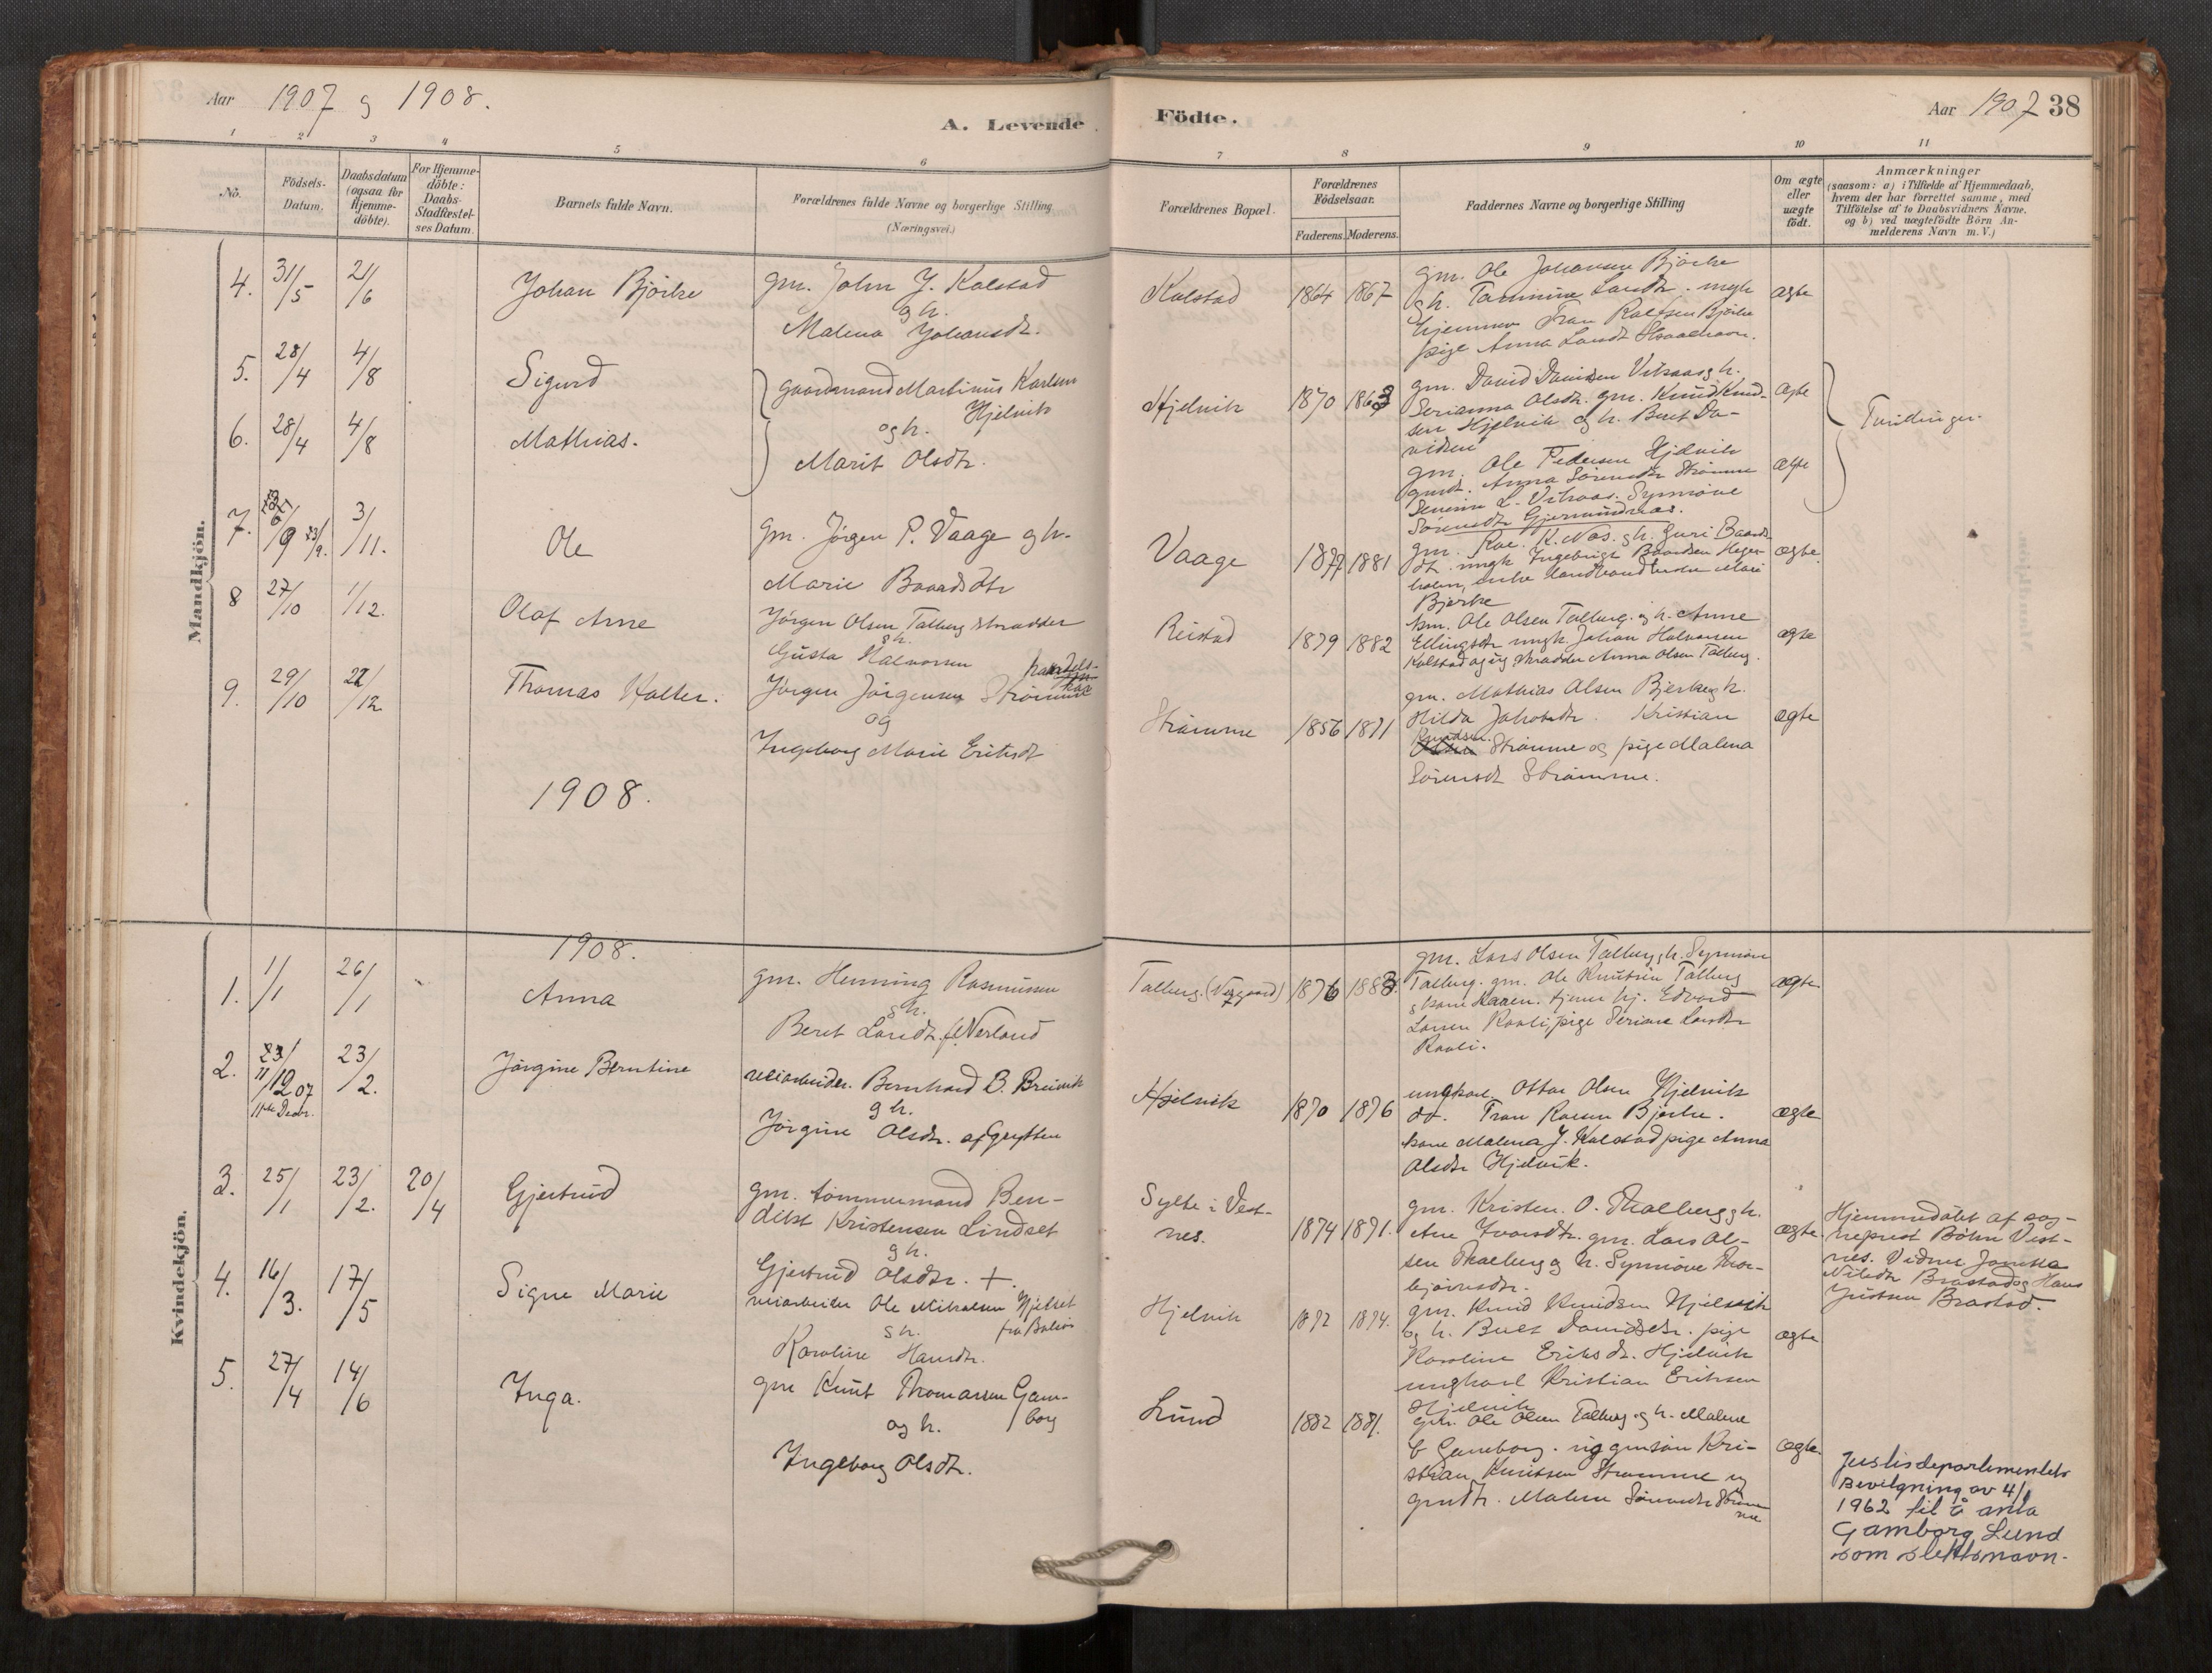 Aar 1907 og 1908.
A. Levende Födte.
Aar 1907 38
1 2 3 4 5 6 7 8 9 10 11
No.
Födsels-Datum.
Daabsdatum (ogsaa for Hjemme-döbte).
For Hjemme-döbte: Daabs-Stadfæstel-ses Datum.
Barnets fulde Navn.
Forældrenes fulde Navne og borgerlige Stilling (Næringsvei.)
Forældrenes Bopæl.
Forældrenes Födselsaar.
Faderens. Moderens.
Faddernes Navne og borgerlige Stilling
Om ægte eller uægte födt.
Anmærkninger
(saasom: a) i Tilfælde af Hjemmedaab,
hvem der har forrettet samme, med
Tilföielse af to Daabsvidners Navne,
og b) ved uægtefödte Börn An-
melderens Navn m. V.)
Mandkjön.
4. 31/5 21/6 Johan Bjørke
gm. John J. Kolstad
gh.
Malena Johansdt.
Kolstad 1864 1867
gm. Ole Johansen Bjørke
gh. Larsdt. ungk
pige Anna
ægte
5. 28/4 4/8 Sigurd
gaardmand Martinus Karlsen
Hjelvik
6. 28/4 4/8 Mathias.
og h.
Marit Olsdtr.
Hjelvik 1870 1863
gm. David Davidsen Vikaas gh.
Serianna Olsdtr. gm. Knud Knud-
sen Hjelvik og h. Beret Da-
vidsen
ægte
Tvillinger.
gm. Ole Pedersen Hjelvik
gmdt. Anna Sørensdtr Strømme
L. Vikaas. Synnøve
Sørensdtr Gjermundnæs.
ægte
7. 6/9 23/9. 3/11. Ole
gm. Jørgen P. Vaage gh.
Marie Baardsdtr
Vaage 1877 1881
gm. Roe. K. Nas. gh. Guri Baards
dt. ungk Ingebrigt Baardsen Heger-
holm, enke Mari
Bjerke
ægte.
8 27/10 1/12. Olaf Arne
Jørgen Olsen Talberg skrædder
gh.
Gusta Halvorsen
Reistad 1879 1882
km. Ole Olsen Talberg. og h. Anne
Ellingsdtr ungk Johan Halvorsen
Kolstad og ug skrædder Anna Olsen Talberg.
ægte
9. 29/10 22/12 Thomas Walter.
handels-
Jørgen Jørgensen Strømme
og
Ingeborg Marie Eriksdt
Strømme 1856 1871
gm. Mathias Olsen Bjerke gh.
Hilda Jakobsdtr. Kristian
Knudsen
Strømme og pige Malena
Sørensdt Strømme.
ægte
1908.
Kvindekjön.
1908.
1. 1/1 26/1 Anna
gm. Henning Rasmussen
gh.
Beret Larsdtr. f. Nerland
Talberg. 1876 1883.
gm. Lars Olsen Talberg gh. Synnøve
Talberg. gm. Ole Knutsen Talberg
g kone Karen. tjener hj. Edvard
Larsen Ravli, pige Seriane Larsdtr
Ravli.
ægte
2. 11/12 07 11te Decbr. 23/2. Jørgine Berntine
veiarbeider. Bernhard B. Breivik
gh.
Jørgine Olsdtr. af Grytten
Hjelvik 1870 1876
ungkarl Ottar Olsen Hjelvik
do. Tran Roesen Bjerke.
kone Malena J. Kolstad pige Anna
Olsdtr Hjelvik.
ægte
3. 25/1 23/2. 20/4 Gjertrud
gm. tømmermand Ben-
dikt Kristensen Lindset
gh.
Gjertrud Olsdtr. +.
Sylte i Vest-
nes. 1874 1871.
gm. Kristen. O. Thalberg gh.
Ane Ivarsdtr. gm. Lars Ol-
sen Thalberg og h. Synnøve Thor-
bjørnsdtr.
ægte.
Hjemmedøbt af sog-
neprest Bøhn Vest-
nes. Vidner Jonetta
Nilsdtr Brastad og Hans
Justsen Brastad.
4. 16/3. 17/5 Signe Marie
veiarbeider Ole Mikalsen Hjelset
gh. fra Bolsø
Karoline Hansdtr.
Hjelvik 1872 1874.
gm. Knud Knudsen Hjelvik
og h. Beret Davidsdtr. pige
Karoline Eriksdt. Hjelvik
ungkarl Kristian Eriksen
Hjelvik
ægte
5. 27/4 14/6 Inga.
gm Knut Thomassen Gam-
borg
og h.
Ingeborg Olsdtr.
Lund 1882 1881.
gm. Ole Olsen Talberg og h. Malene
E Gamborg. ug gmsøn Kri-
stian Knutsen Strømme og
gmdtr. Malena Sørensdtr Strøm-
me
ægte.
Justisdepartementets
Bevilgning av 4/1
1962 til å anta
Gamborg Lund
som slektsnavn.